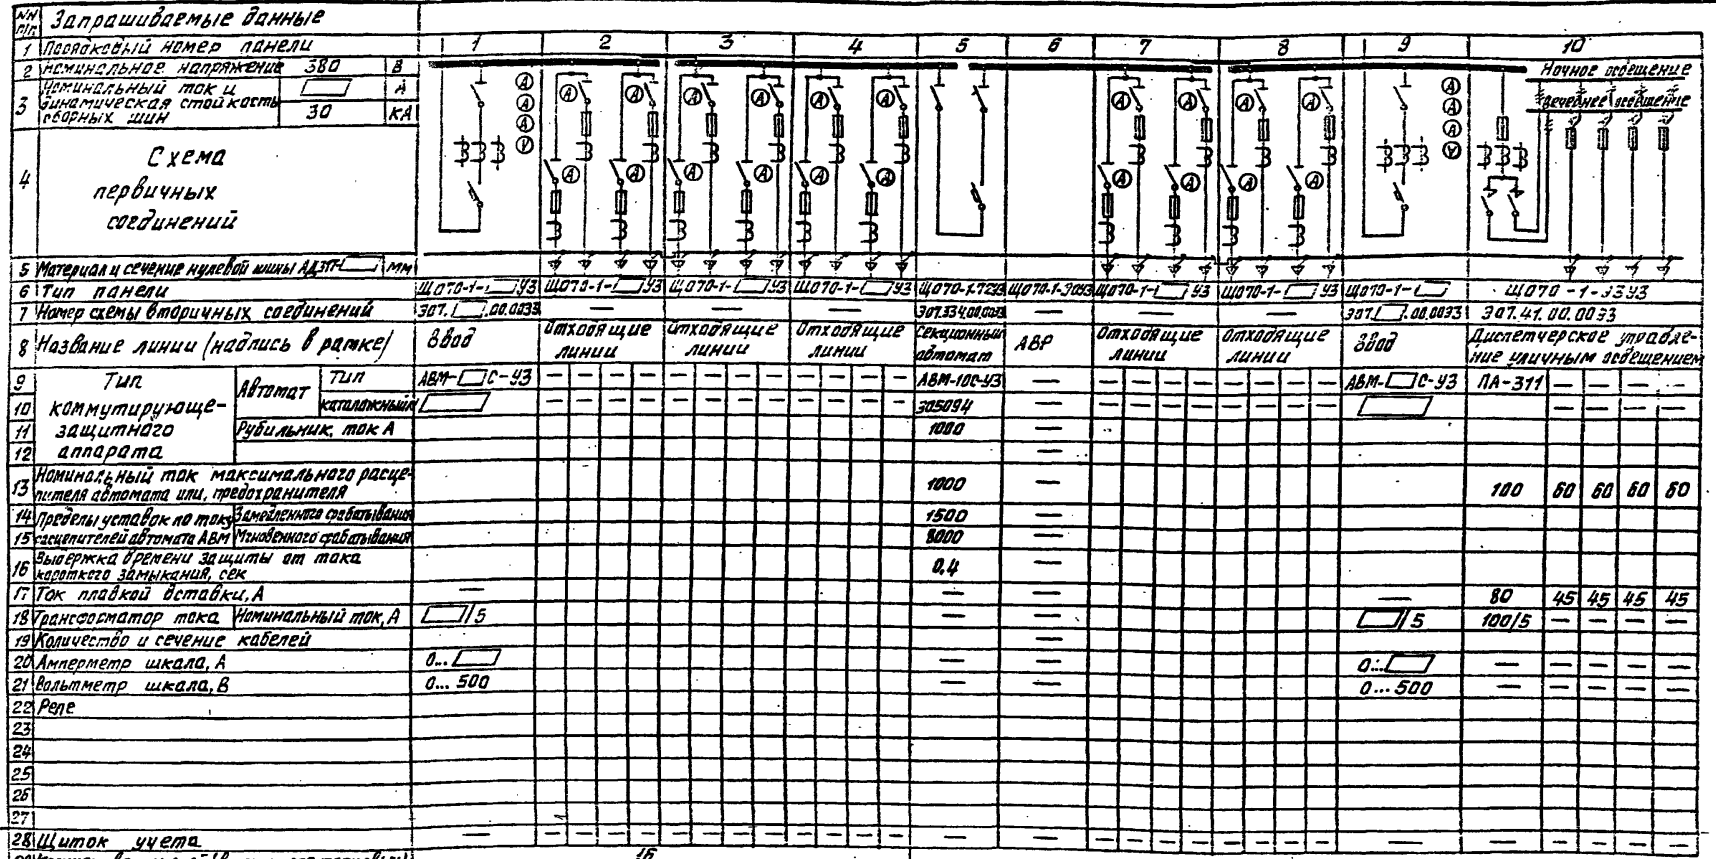 NN п/п Запрашиваемые данные
1 Порядковый номер панели 1 2 3 4 5 6 7 8 9 10
2 Номинальное напряжение 380 В
3 Номинальный ток и динамическая стойкость сборных шин А
30 кА
Ночное освещение
Вечернее освещение
4 Схема первичных соединений
А А А V А А А А А А А А А А А А А А А А А А А А А А А V
5 Материал и сечение нулевой шины АД31Т- мм
6 Тип панели ЩО70-1- У3 ЩО70-1- У3 ЩО70-1- У3 ЩО70-1- У3 ЩО70-1-90У3 ЩО70-1- У3 ЩО70-1- У3 ЩО70-1- ЩО70-1-93У3
7 Номер схемы вторичных соединений ЗОТ. .00.00ЭЗ — — — — — — ЗОТ. .00.00ЭЗ ЗОТ.41.00.00ЭЗ
8 Название линии (надпись в рамке) Ввод Отходящие линии Отходящие линии Отходящие линии Секционный автомат АВР Отходящие линии Отходящие линии Ввод Диспетчерское управление уличным освещением
9 Тип коммутирующе-защитного аппарата Автомат Тип АВМ- С-У3 АВМ-10С-У3 — АВМ- С-У3 ПА-311 — — — —
10 каталожный 305094 — — — — —
11 Рубильник, ток А 1000 —
12 —
13 Номинальный ток максимального расцепителя автомата или, предохранителя 1000 — 100 60 60 60 60
14 Пределы уставок по току расцепителей автомата АВМ Замедленного срабатывания 1500
15 Мгновенного срабатывания 8000
16 Выдержка времени защиты от тока короткого замыкания, сек 0,4
17 Ток плавкой вставки, А — — — — 80 45 45 45 45
18 Трансформатор тока Номинальный ток, А /5 — — /5 100/5 — — — —
19 Количество и сечение кабелей —
20 Амперметр шкала, А 0... — — 0... — — — — —
21 Вольтметр шкала, В 0...500 — — 0...500 — — — — —
22 Реле
23
24
25
26
27
28 Щиток учета — — — — — — — — — —
16